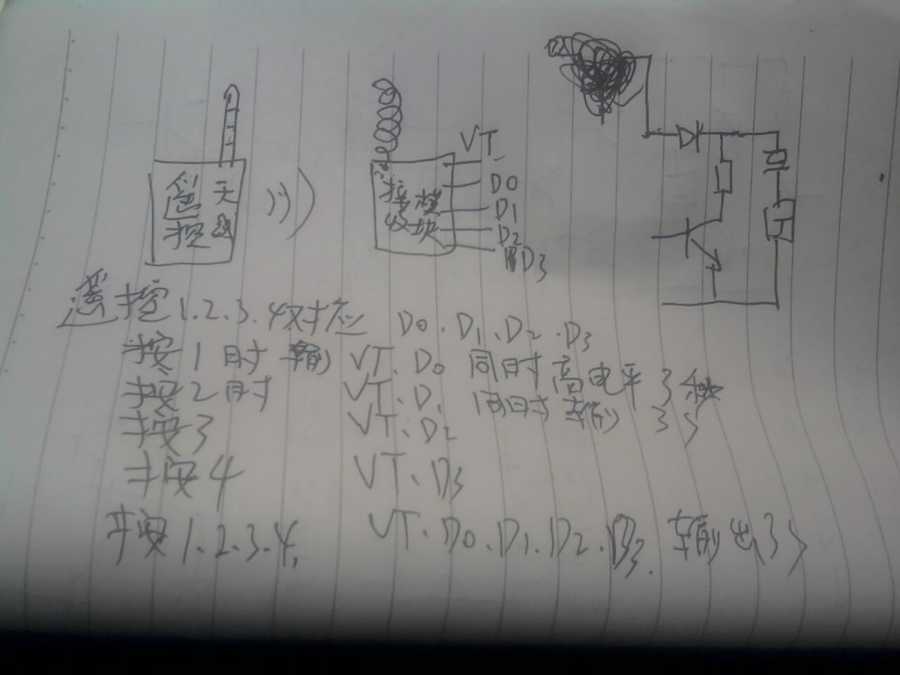 遥控
天线
接收
模块
VT
D0
D1
D2
D3
遥控1.2.3.4对应 D0.D1.D2.D3
按1时 输 VT.D0 同时高电平3秒
按2时 VT.D1 同时输 3S
按3 VT.D2
按4 VT.D3
按1.2.3.4. VT.D0.D1.D2.D3. 输出3S